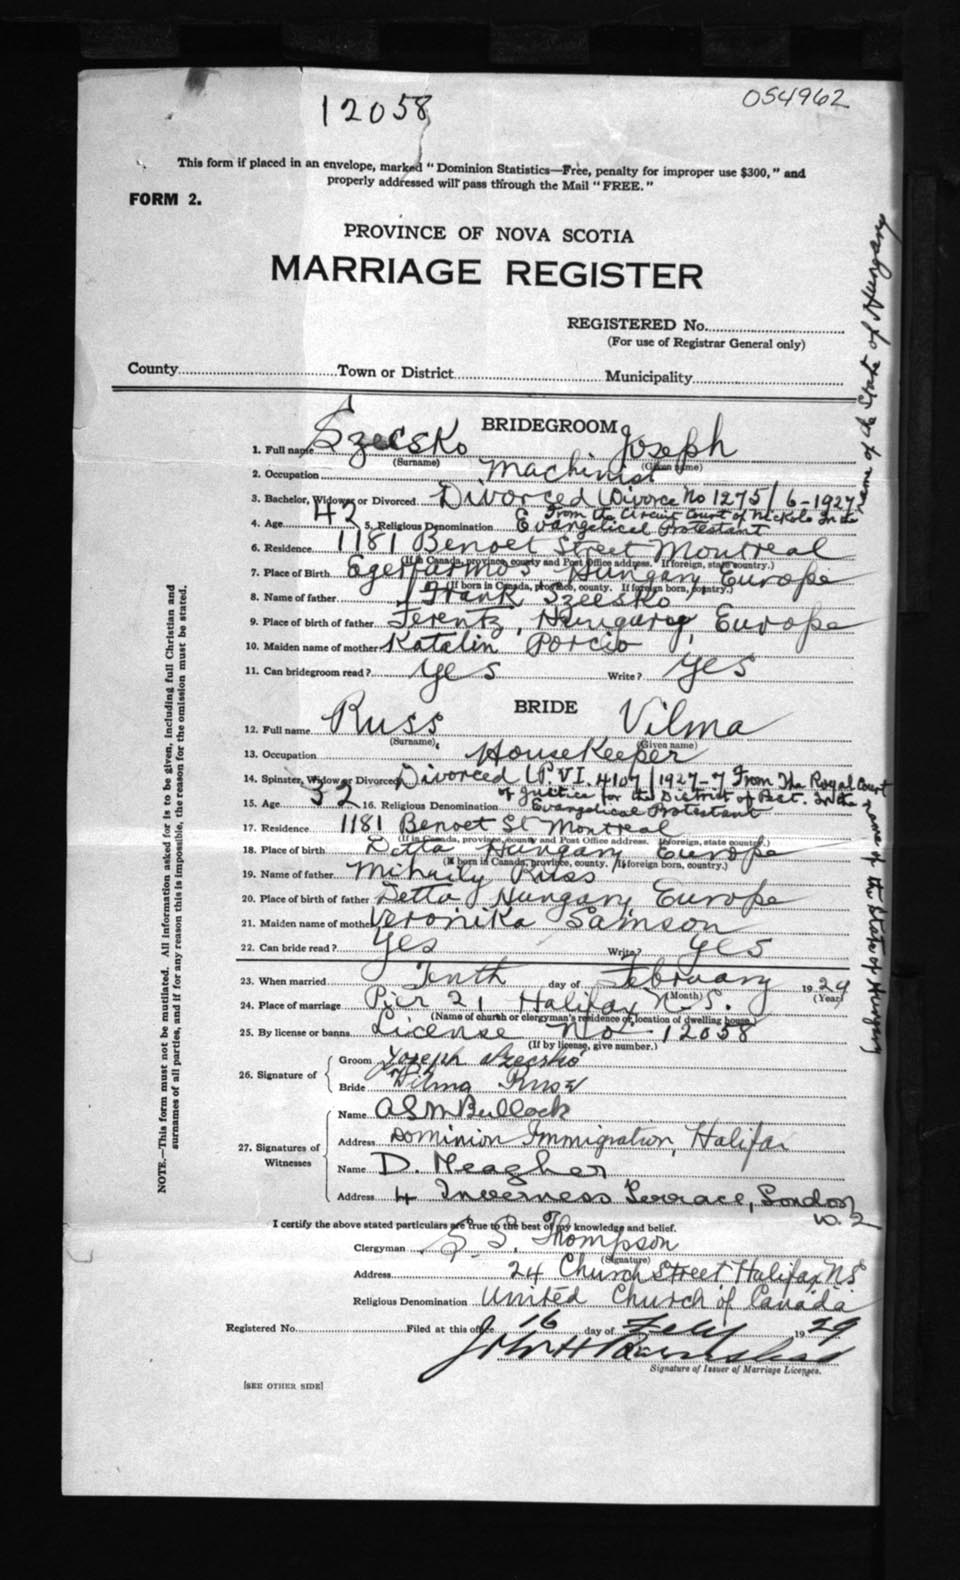 12058
OS4962
This form if placed in an envelope, marked "Dominion Statistics—Free, penalty for improper use $300," and
properly addressed will pass through the Mail "FREE."
FORM 2.
PROVINCE OF NOVA SCOTIA
MARRIAGE REGISTER
REGISTERED No.
(For use of Registrar General only)
County Town or District Municipality
BRIDEGROOM
1. Full name Szecsko Joseph
(Surname) (Given name)
2. Occupation Machinist
3. Bachelor, Widower or Divorced Divorced (Divorce No 1275/6-1927
From the Circuit Court of in the
name of the State of Hungary
4. Age 42 5. Religious Denomination Evangelical Protestant
6. Residence 1181 Benoet Street Montreal
(If in Canada, province, county and Post Office address. If foreign, state country.)
7. Place of Birth Hungary Europe
(If born in Canada, province, county. If foreign born, country.)
8. Name of father Frank Szecsko
9. Place of birth of father Ferentz, Hungary, Europe
10. Maiden name of mother Katalin Porcio
11. Can bridegroom read? Yes Write? Yes
BRIDE
12. Full name Russ Vilma
(Surname) (Given name)
13. Occupation HouseKeeper
14. Spinster, Widow or Divorced Divorced (P.VI. 4107/1927-7 From The Royal Court
of Justice for the District of Pest. In the
name of the State of Hungary
15. Age 32 16. Religious Denomination Evangelical Protestant
17. Residence 1181 Benoet St Montreal
(If in Canada, province, county and Post Office address. If foreign, state country.)
18. Place of birth Detta Hungary Europe
(If born in Canada, province, county. If foreign born, country.)
19. Name of father Mihaily Russ
20. Place of birth of father Detta Hungary Europe
21. Maiden name of mother Veronika Samson
22. Can bride read? Yes Write? Yes
23. When married Tenth day of February 1929
(Month) (Year)
24. Place of marriage Pier 21 Halifax N.S.
(Name of church or clergyman's residence or location of dwelling house.)
25. By license or banns License No 12058
(If by license, give number.)
26. Signature of Groom Joseph Szecskó
Bride Vilma Russ
27. Signatures of Witnesses
Name A S M Bullock
Address Dominion Immigration, Halifax
Name D. Meagher
Address 4 Inverness Terrace, London
W. 2
I certify the above stated particulars are true to the best of my knowledge and belief.
Clergyman S. S. Thompson
(Signature)
Address 24 Church Street, Halifax N.S.
Religious Denomination United Church of Canada
Registered No. Filed at this office 16 day of Feby 1929
John H
Signature of Issuer of Marriage Licenses.
[SEE OTHER SIDE]
NOTE.—This form must not be mutilated. All information asked for is to be given, including full Christian and
surnames of all parties, and if for any reason this is impossible, the reason for the omission must be stated.